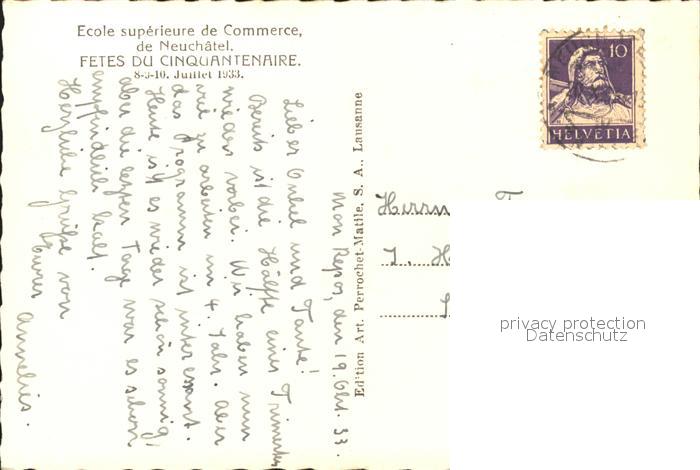 Ecole supérieure de Commerce,
de Neuchâtel.
FETES DU CINQUANTENAIRE.
8-9-10. Juillet 1933.
10
HELVETIA
Mon Repos, den 19. Okt. 33.
Lieber Onkel und Tante!
Bereits ist die Hälfte eines Trimesters
wieder vorbei. Wir haben nun
viel zu arbeiten im 4. Jahr. Aber
das Programm ist interessant.
Heute ist es wieder schön sonnig,
aber die letzten Tage war es schon
empfindlich kalt.
Herzliche Grüße von
Eurer
Annelies.
Edition Art. Perrochet-Matile, S. A., Lausanne
Herrn
J. H
privacy protection
Datenschutz